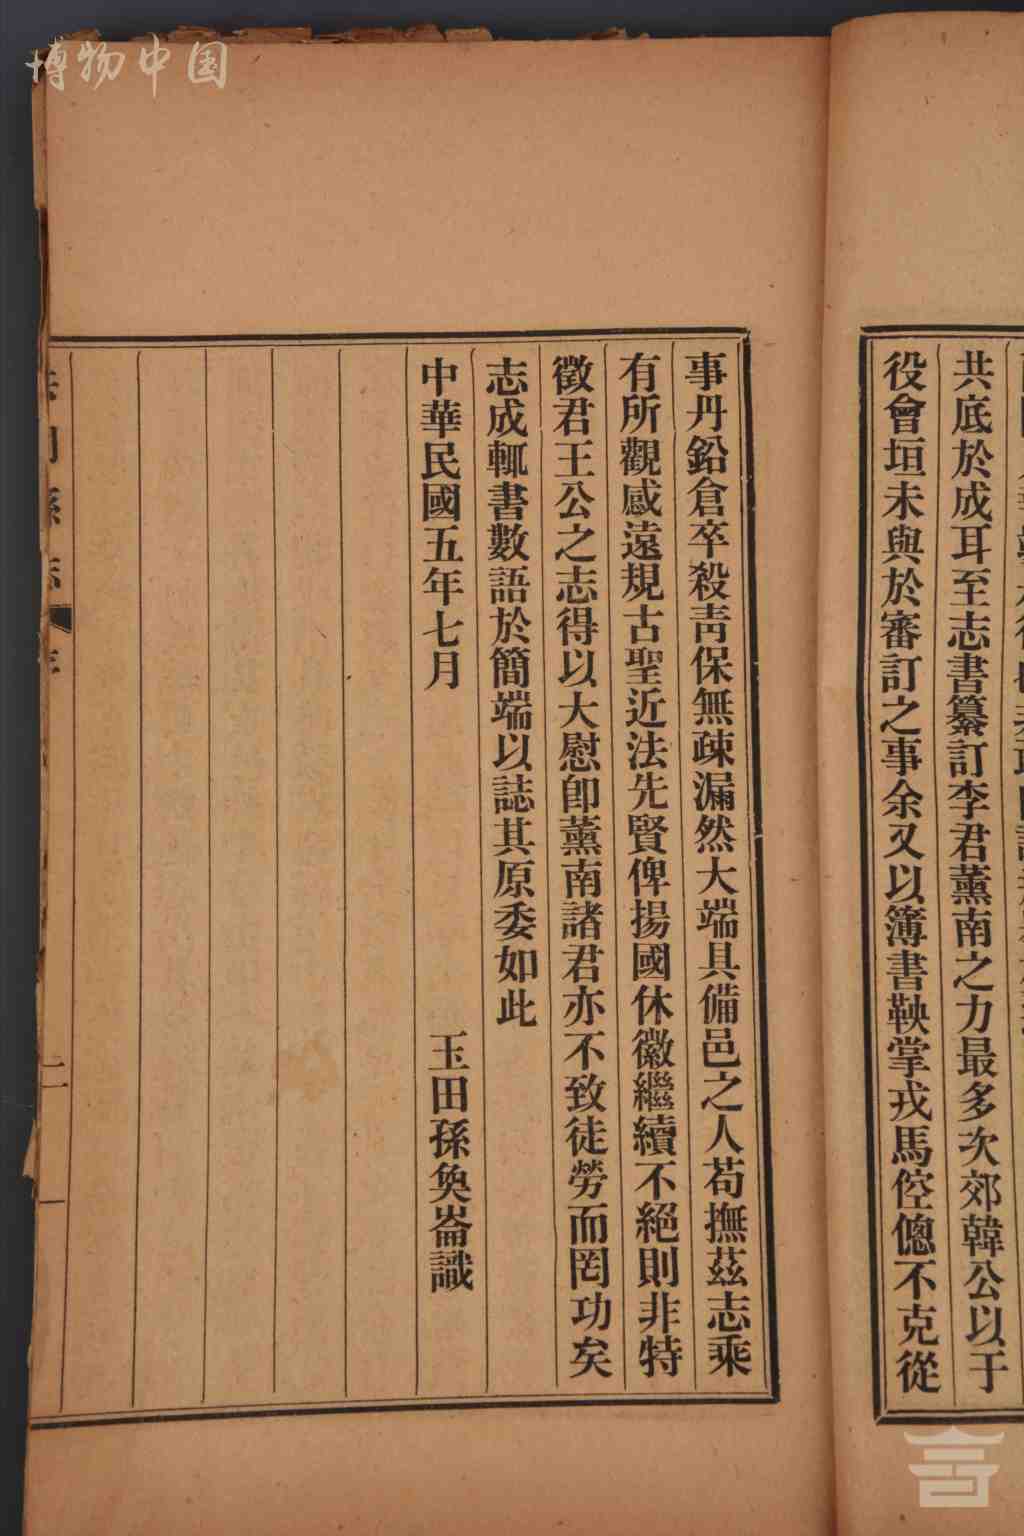 博物中国
共底於成耳至志書纂訂李君薰南之力最多次郊韓公以于
役會垣未與於審訂之事余又以簿書鞅掌戎馬倥傯不克從
事丹鉛倉卒殺靑保無疎漏然大端具備邑之人苟撫茲志乘
有所觀感遠規古聖近法先賢俾揚國休徽繼續不絕則非特
徵君王公之志得以大慰卽薰南諸君亦不致徒勞而罔功矣
志成輒書數語於簡端以誌其原委如此
中華民國五年七月
玉田孫奐崙識
二
一